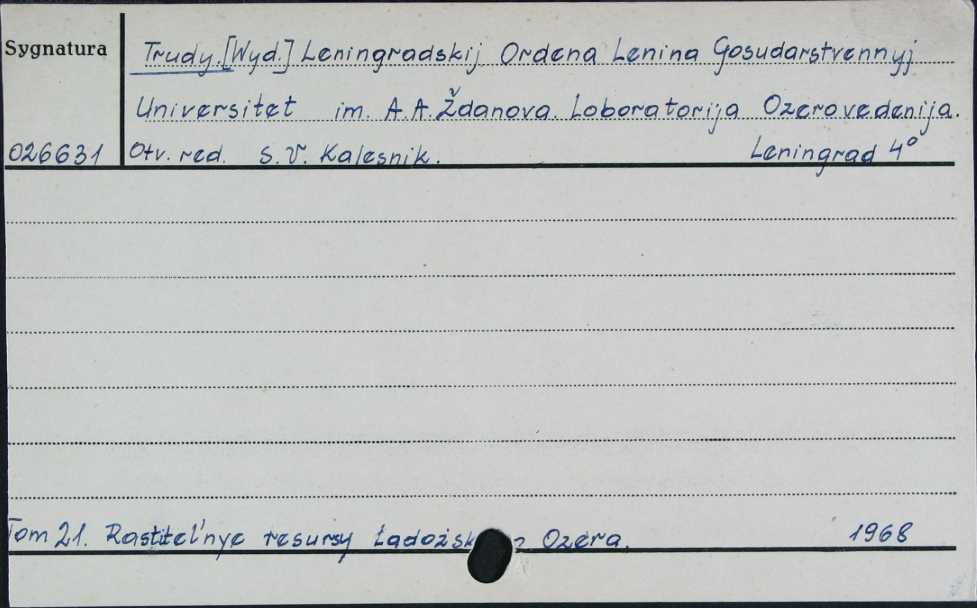 Sygnatura
Trudy. [Wyd.] Leningradskij Ordena Lenina Gosudarstvennyj
Universitet im. A.A. Ždanova. Loboratorija Ozerovedenija.
026631 Otv. red. S.V. Kalesnik. Leningrad 4°
Tom 21. Rastitel'nye resursy Ozera. 1968